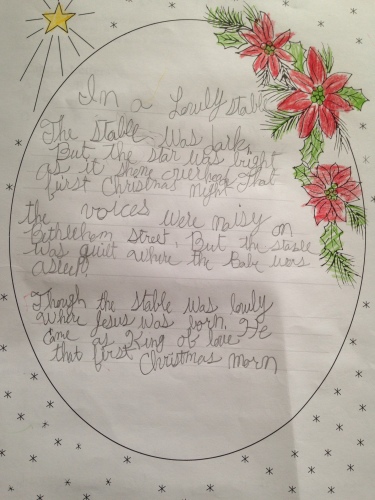 In a Lowly stable
The stable was dark,
But the star was bright
as it shone overhead That
first Christmas night
the voices were noisy on
Bethlehem street, But the stable
was quiet where the Babe was
asleep,
Though the stable was lowly
Where Jesus was born, He
Came as King of love
that first Christmas morn